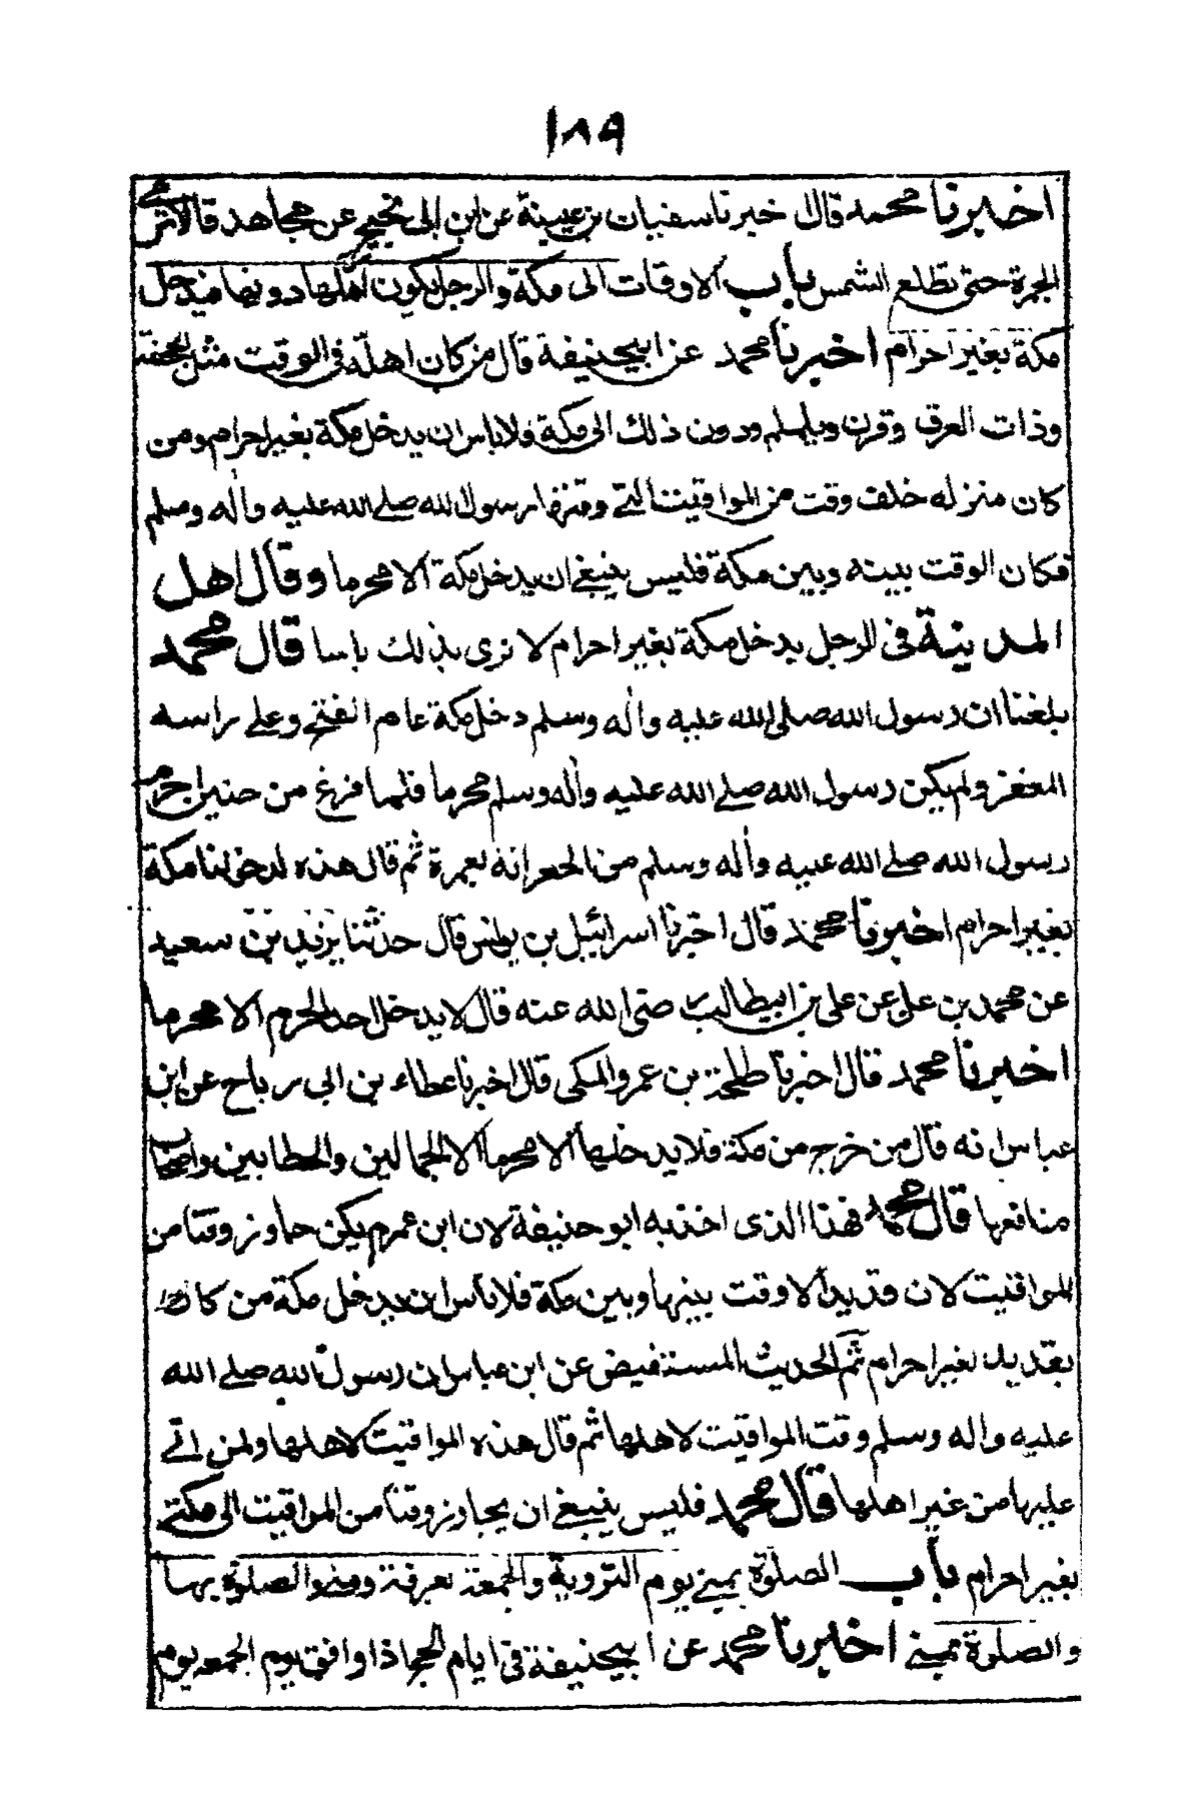 ١٨٩
اخبرنا محمد قال خبرنا سفيان بن عيينة عن ابن ابى نجيح عن مجاهد قال لا ترمى
الجمرة حتى تطلع الشمس باب الاوقات الى مكة والرجل يكون اهلها دونها فيدخل
مكة بغير احرام اخبرنا محمد عن ابيحنيفة قال من كان اهله فى الوقت مثل الجحفة
وذات العرق وقرن ويلملم ودون ذلك الى مكة فلا باس ان يدخل مكة بغير احرام ومن
كان منزله خلف وقت من المواقيت التے وقتها رسول الله صلے الله عليه واله وسلم
فكان الوقت بينه وبين مكة فليس ينبغے ان يدخل مكة الا محرما وقال اهل
المدينة فى الرجل يدخل مكة بغير احرام لا نرى بذلك باسا قال محمد
بلغنا ان رسول الله صلى الله عليه واله وسلم دخل مكة عام الفتح وعلے راسه
المغفر ولم يكن رسول الله صلے الله عليه واله وسلم محرما فلما فرغ من حنين احرم
رسول الله صلے الله عليه واله وسلم من الجعرانة بعمرة ثم قال هذه لدخولنا مكة
بغير احرام اخبرنا محمد قال اخبرنا اسرائيل بن يونس قال حدثنا يزيد بن سعيد
عن محمد بن على عن على بن ابيطالب رضى الله عنه قال لا يدخل احد الحرم الا محرما
اخبرنا محمد قال اخبرنا طلحة بن عمرو المكى قال اخبرنا عطاء بن ابى رباح عن ابن
عباس انه قال من خرج من مكة فلا يدخلها الا محرما الا الجمالين والحطابين واصحاب
منافعها قال محمد فهذا الذى اخذ به ابو حنيفة لان ابن عمر لم يكن جاوز وقتا من
المواقيت لان قديدا لا وقت بينها وبين مكة فلا باس ان يدخل مكة من كان
بقديد بغير احرام ثم الحديث المستفيض عن ابن عباس ان رسول الله صلے الله
عليه واله وسلم وقت المواقيت لاهلها ثم قال هذه المواقيت لاهلها ولمن اتے
عليها من غير اهلها قال محمد فليس ينبغے ان يجاوز وقتا من المواقيت الى مكة
بغير احرام باب الصلوة بمنے يوم التروية والجمعة بعرفة ومنے والصلوة بها
والصلوة بمنے اخبرنا محمد عن ابيحنيفة فى ايام الحج اذا وافق يوم الجمعة يوم